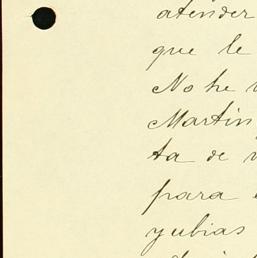 atender
que le
No he
Martin
ta de
para
yubias